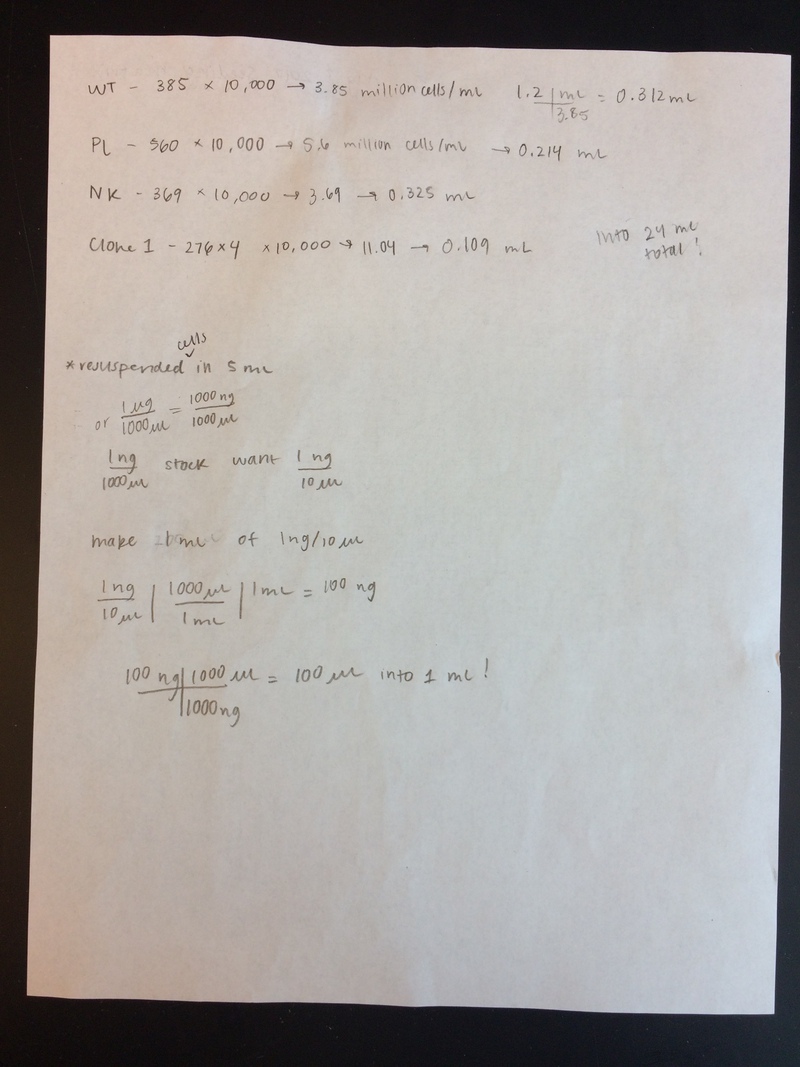 WT - 385 × 10,000 → 3.85 million cells/mL 1.2 | mL / 3.85 = 0.312 mL
PL - 560 × 10,000 → 5.6 million cells/mL → 0.214 mL
NK - 369 × 10,000 → 3.69 → 0.325 mL
Clone 1 - 276×4 ×10,000 → 11.04 → 0.109 mL
into 24 mL
total!
cells
*resuspended in 5 mL
or 1 µg/1000 µL = 1000 ng/1000 µL
1 ng/1000 µL stock want 1 ng/10 µL
make 1 mL of 1ng/10 µL
1 ng/10 µL | 1000 µL/1 mL | 1 mL = 100 ng
100 ng | 1000 µL / 1000 ng = 100 µL into 1 mL!